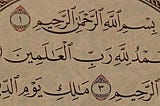 بِسْمِ ٱللَّهِ ٱلرَّحْمَٰنِ ٱلرَّحِيمِ ١
ـمْدُ لِلَّهِ رَبِّ ٱلْعَٰلَمِينَ
ٱلرَّحِيمِ ٣ مَٰلِكِ يَوْمِ ٱلدِّ